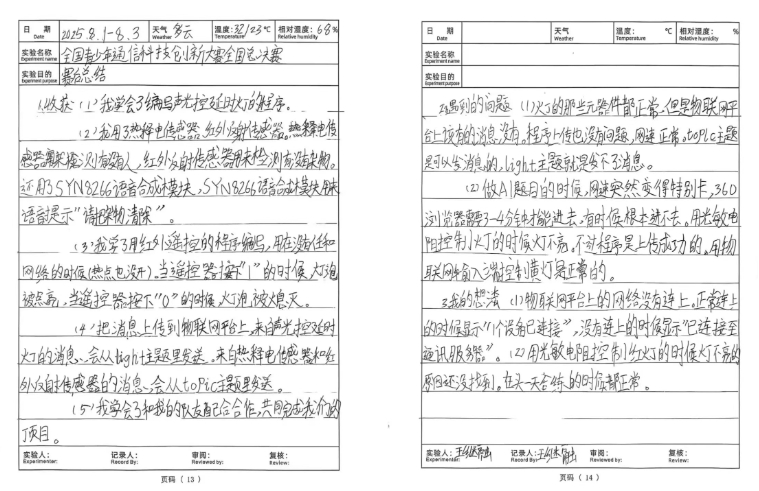 日 期 Date 2025.8.1-8.3 天气 Weather 多云 温度: 32/23℃ Temperature 相对湿度: 68% Relative humidity
实验名称 Experiment name 全国青少年通信科技创新大赛全国总决赛
实验目的 Experiment purpose 赛后总结
1.收获 (1)我学会了编写声光控延时灯的程序。
(2)我用了热释电传感器、红外反射传感器。热释电传
感器用来检测有没有人,红外反射传感器用来检测有没有果物。
还用了SYN8266语音合成模块,SYN8266语音合成模块用来
语音提示“请把果物清除”。
(3)我学了用红外遥控的程序编写,用在没有任何
网络的时候(热点也没开)。当遥控器按下“1”的时候,灯泡
被点亮,当遥控器按下“0”的时候,灯泡被熄灭。
(4)把消息上传到物联网平台上,来自声光控延时
灯的消息、会从light主题里发送。来自热释电传感器和红
外反射传感器的消息、会从topic主题里发送。
(5)我学会了和我的队友配合合作,共同完成我们的
项目。
实验人: Experimenter: 记录人: Record By: 审阅: Reviewed by: 复核: Review:
页码 ( 13 )
日 期 Date 天气 Weather 温度: ℃ Temperature 相对湿度: % Relative humidity
实验名称 Experiment name
实验目的 Experiment purpose
2.遇到的问题 (1)灯的那些元器件都正常,但是物联网平
台上该有的消息没有。程序上传也没有问题,网速正常。topic主题
是可以发消息的,light主题就是发不了消息。
(2)做AI题目的时候,网速突然变得特别卡,360
浏览器需要3-4分钟才能进去,有时候根本进不去。用光敏电
阻控制小灯的时候灯不亮,不过程序是上传成功的。用物
联网输入端控制黄灯是正常的。
3.我的想法 (1)物联网平台上的网络没有连上。正常连上
的时候显示“1个设备已连接”,没有连上的时候显示“已连接至
通讯服务器”。(2)用光敏电阻控制红灯的时候灯不亮的
原因还没找到。在头一天合练的时候都正常。
实验人: Experimenter: 记录人: Record By: 审阅: Reviewed by: 复核: Review:
页码 ( 14 )